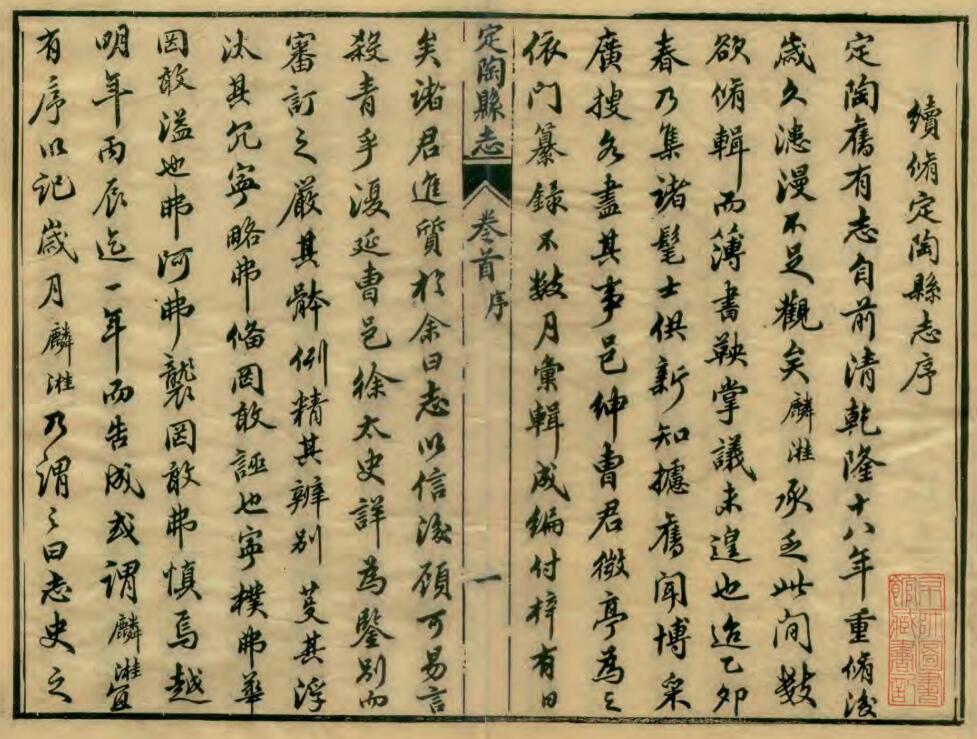 續脩定陶縣志序
定陶舊有志自前清乾隆十八年重脩後
歲久漶漫不足觀矣麟洼承乏此間數
欲脩輯而簿書鞅掌議未遑也迨乙卯
春乃集諸髦士供新知攄舊聞博采
廣搜各盡其事邑紳曹君徵亭為之
依門纂錄不數月彙輯成編付梓有日
定陶縣志 卷首 序 一
矣諸君進質於余曰志以信後顧可易言
殺青乎復延曹邑徐太史詳為鑒別而
審訂之嚴其骵例精其辨別芟其浮
汰其冗寧略弗俻罔敢誣也寧樸弗華
罔敢溢也弗阿弗襲罔敢弗慎焉越
明年丙辰迄一年而告成或謂麟洼宜
有序以記歲月麟洼乃謂之曰志史之